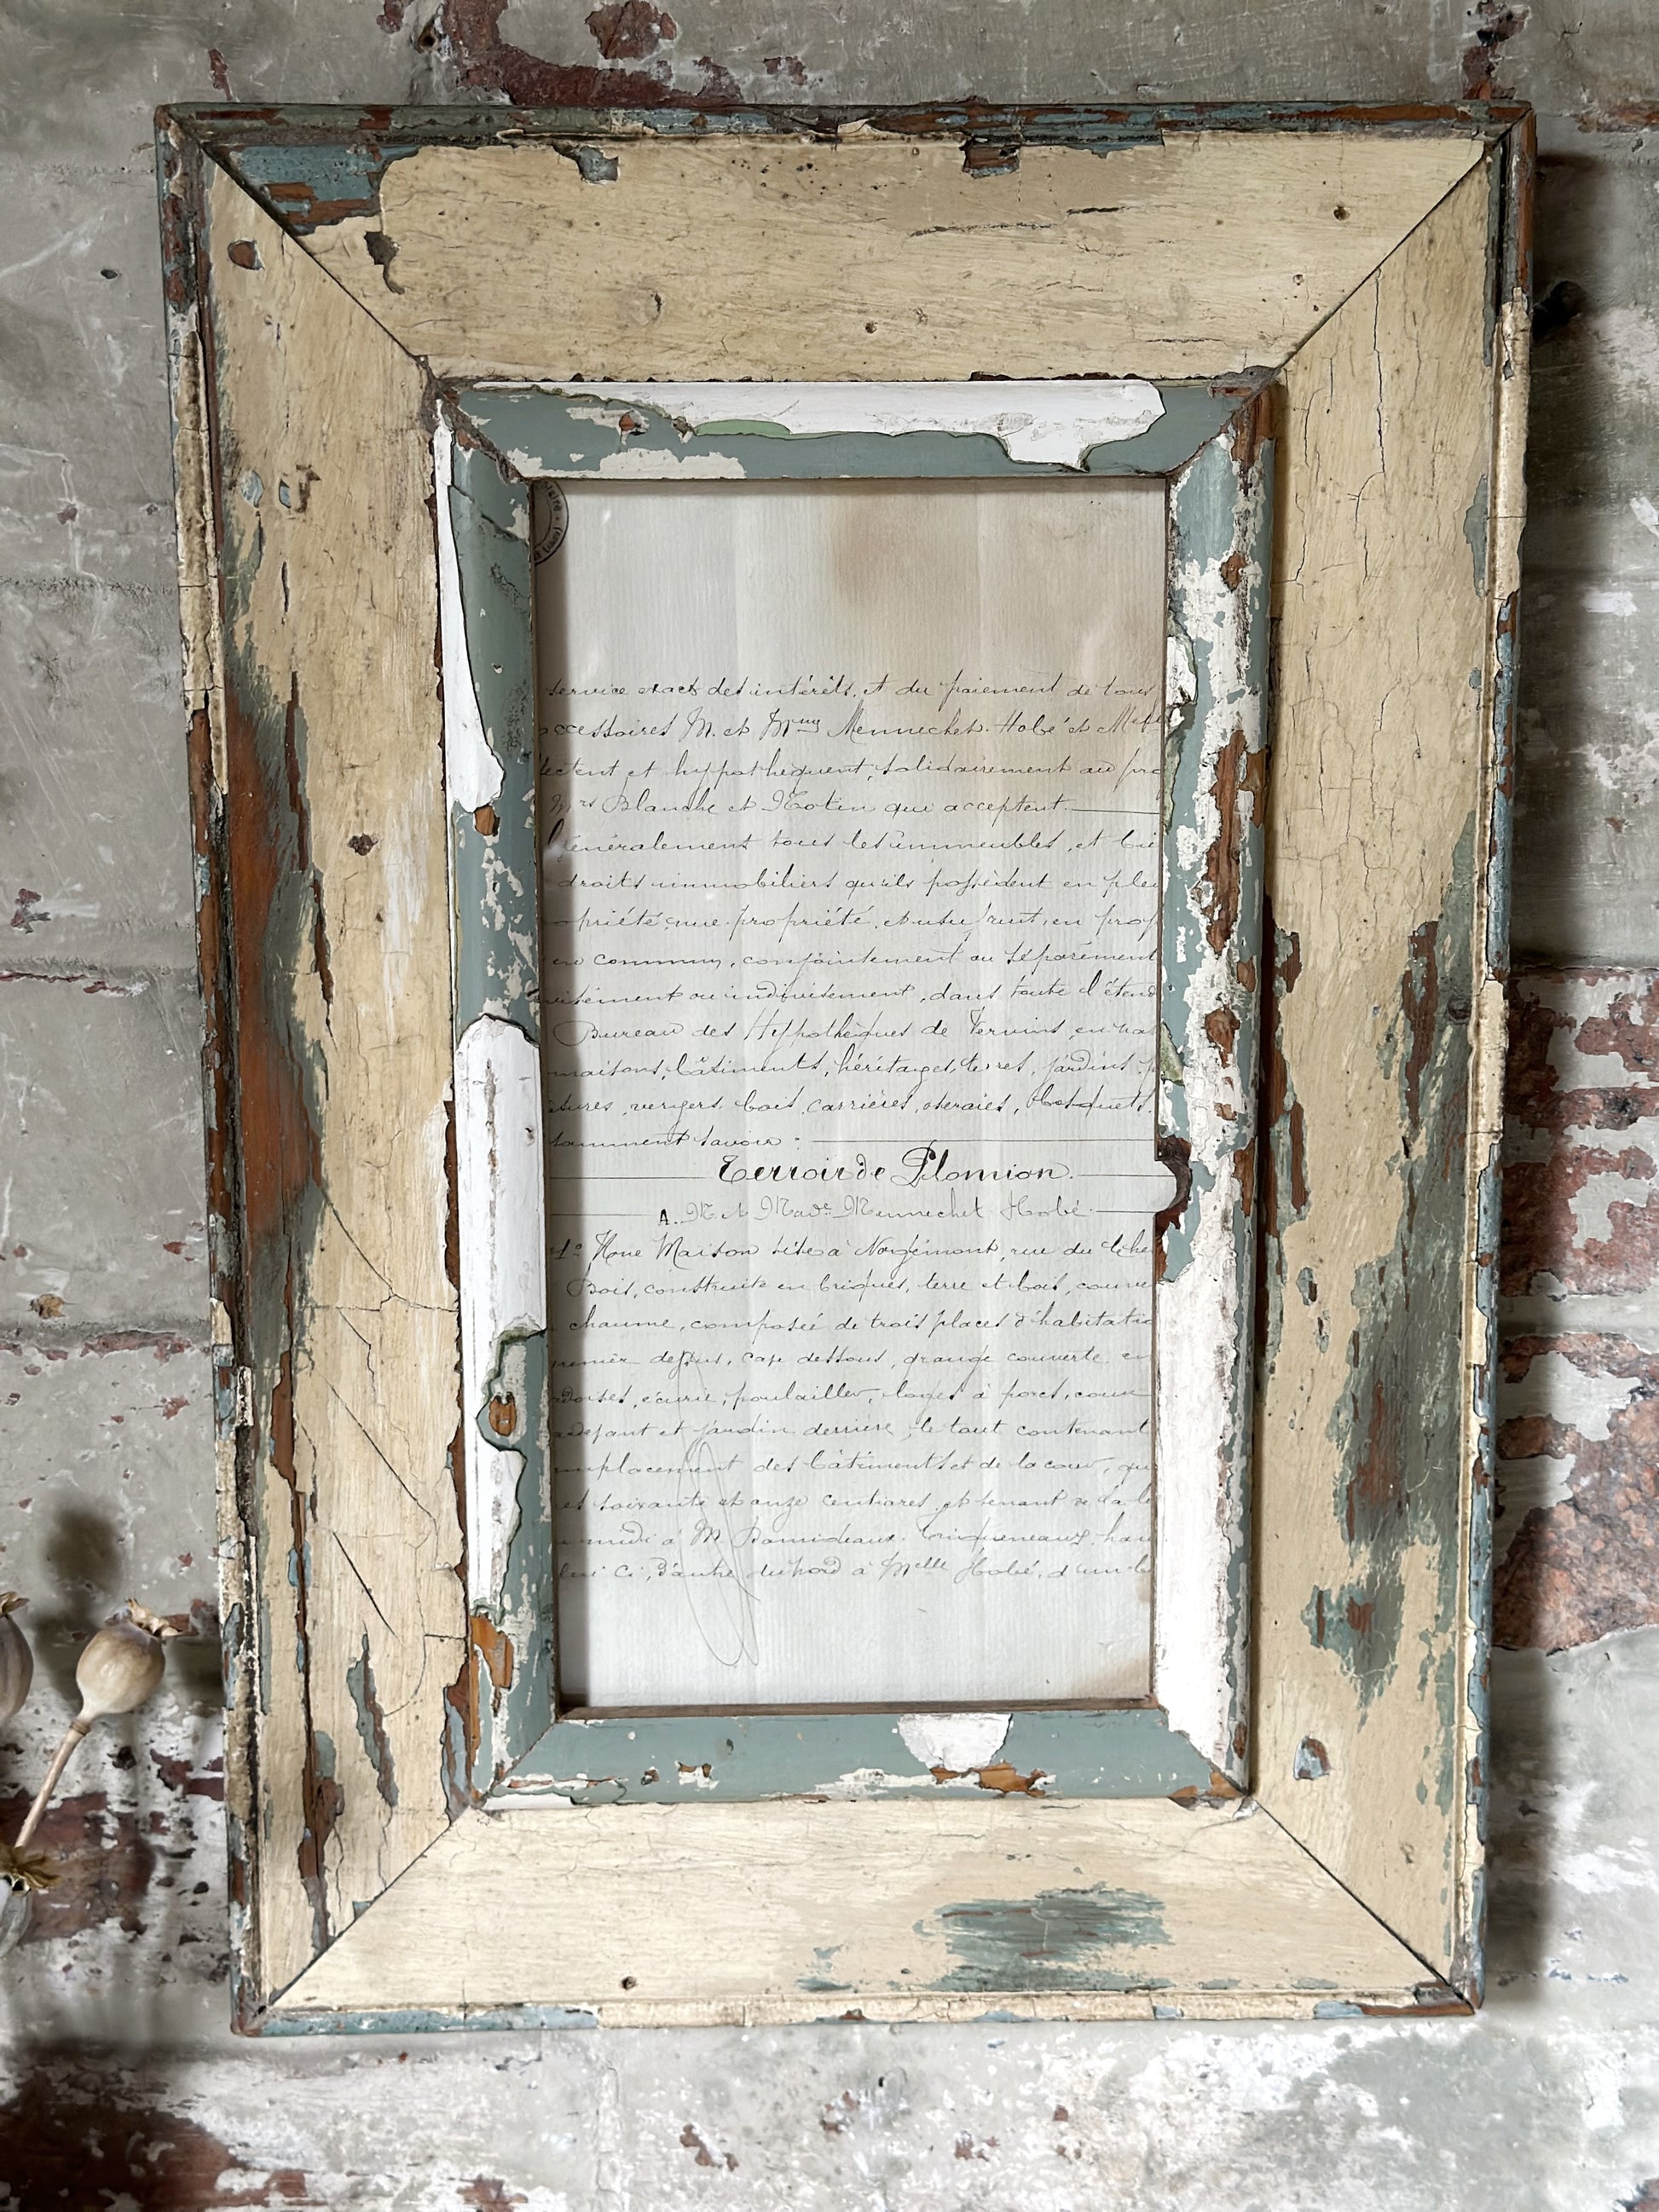 service exact des intérêts, et du paiement de tous
ccessoires M. et Mme Mennechet-Hobé et Melle
ectent et hypothèquent, solidairement au pro
Mrs Blanche et que acceptent.
Généralement tous les immeubles, et bie
droits immobiliers qu'ils possèdent en plei
opriété, nue-propriété, et usufruit, en prop
en commun, conjointement ou séparément
visément ou indivisément, dans toute l'étend
Bureau des Hypothèques de Vervins, en nat
maisons, bâtiments, héritages, terres, jardins, p
tures, vergers, bois, carrières, oseraies, bosquets,
tamment savoir :
Terroir de Plomion.
A. M. et Made Mennechet-Hobé.
1º Une Maison sise à , rue du
Bois, construite en briques, terre et bois, couve
chaume, composée de trois places d'habitatio
renier dessus, cave dessous, grange couverte en
rdoises, écurie, poulailler, loges à porcs, cour
devant et jardin derrière, le tout contenant
mplacement des bâtiments et de la cour,
et soixante et onze centiares, et tenant
midi à M.
ci, d'autre du nord à Melle Hobé, d'un b